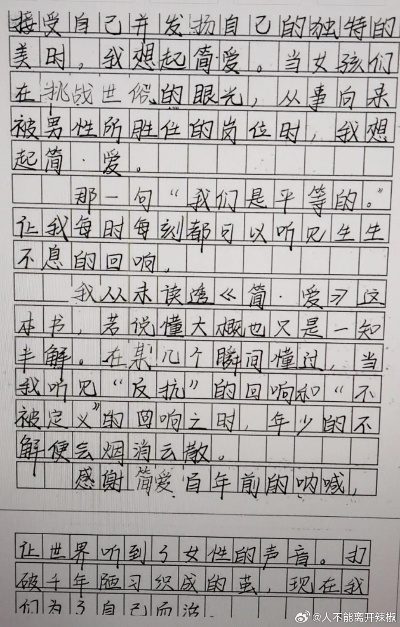 接受自己并发扬自己的独特的
美时，我想起简爱。当女孩们
在挑战世俗的眼光，从事向来
被男性所胜位的岗位时，我想
起简·爱。
那一句“我们是平等的。”
让我每时每刻都可以听见生生
不息的回响，
我从未读透《简·爱》这
本书，若说懂大概也只是一知
半解。在某几个瞬间懂过，当
我听见“反抗”的回响和“不
被定义”的回响之时，年少的不
解便会烟消云散。
感谢简爱百年前的呐喊，
让世界听到了女性的声音。打
破千年陋习织成的茧，现在我
们为了自己而治
@人不能离开辣椒